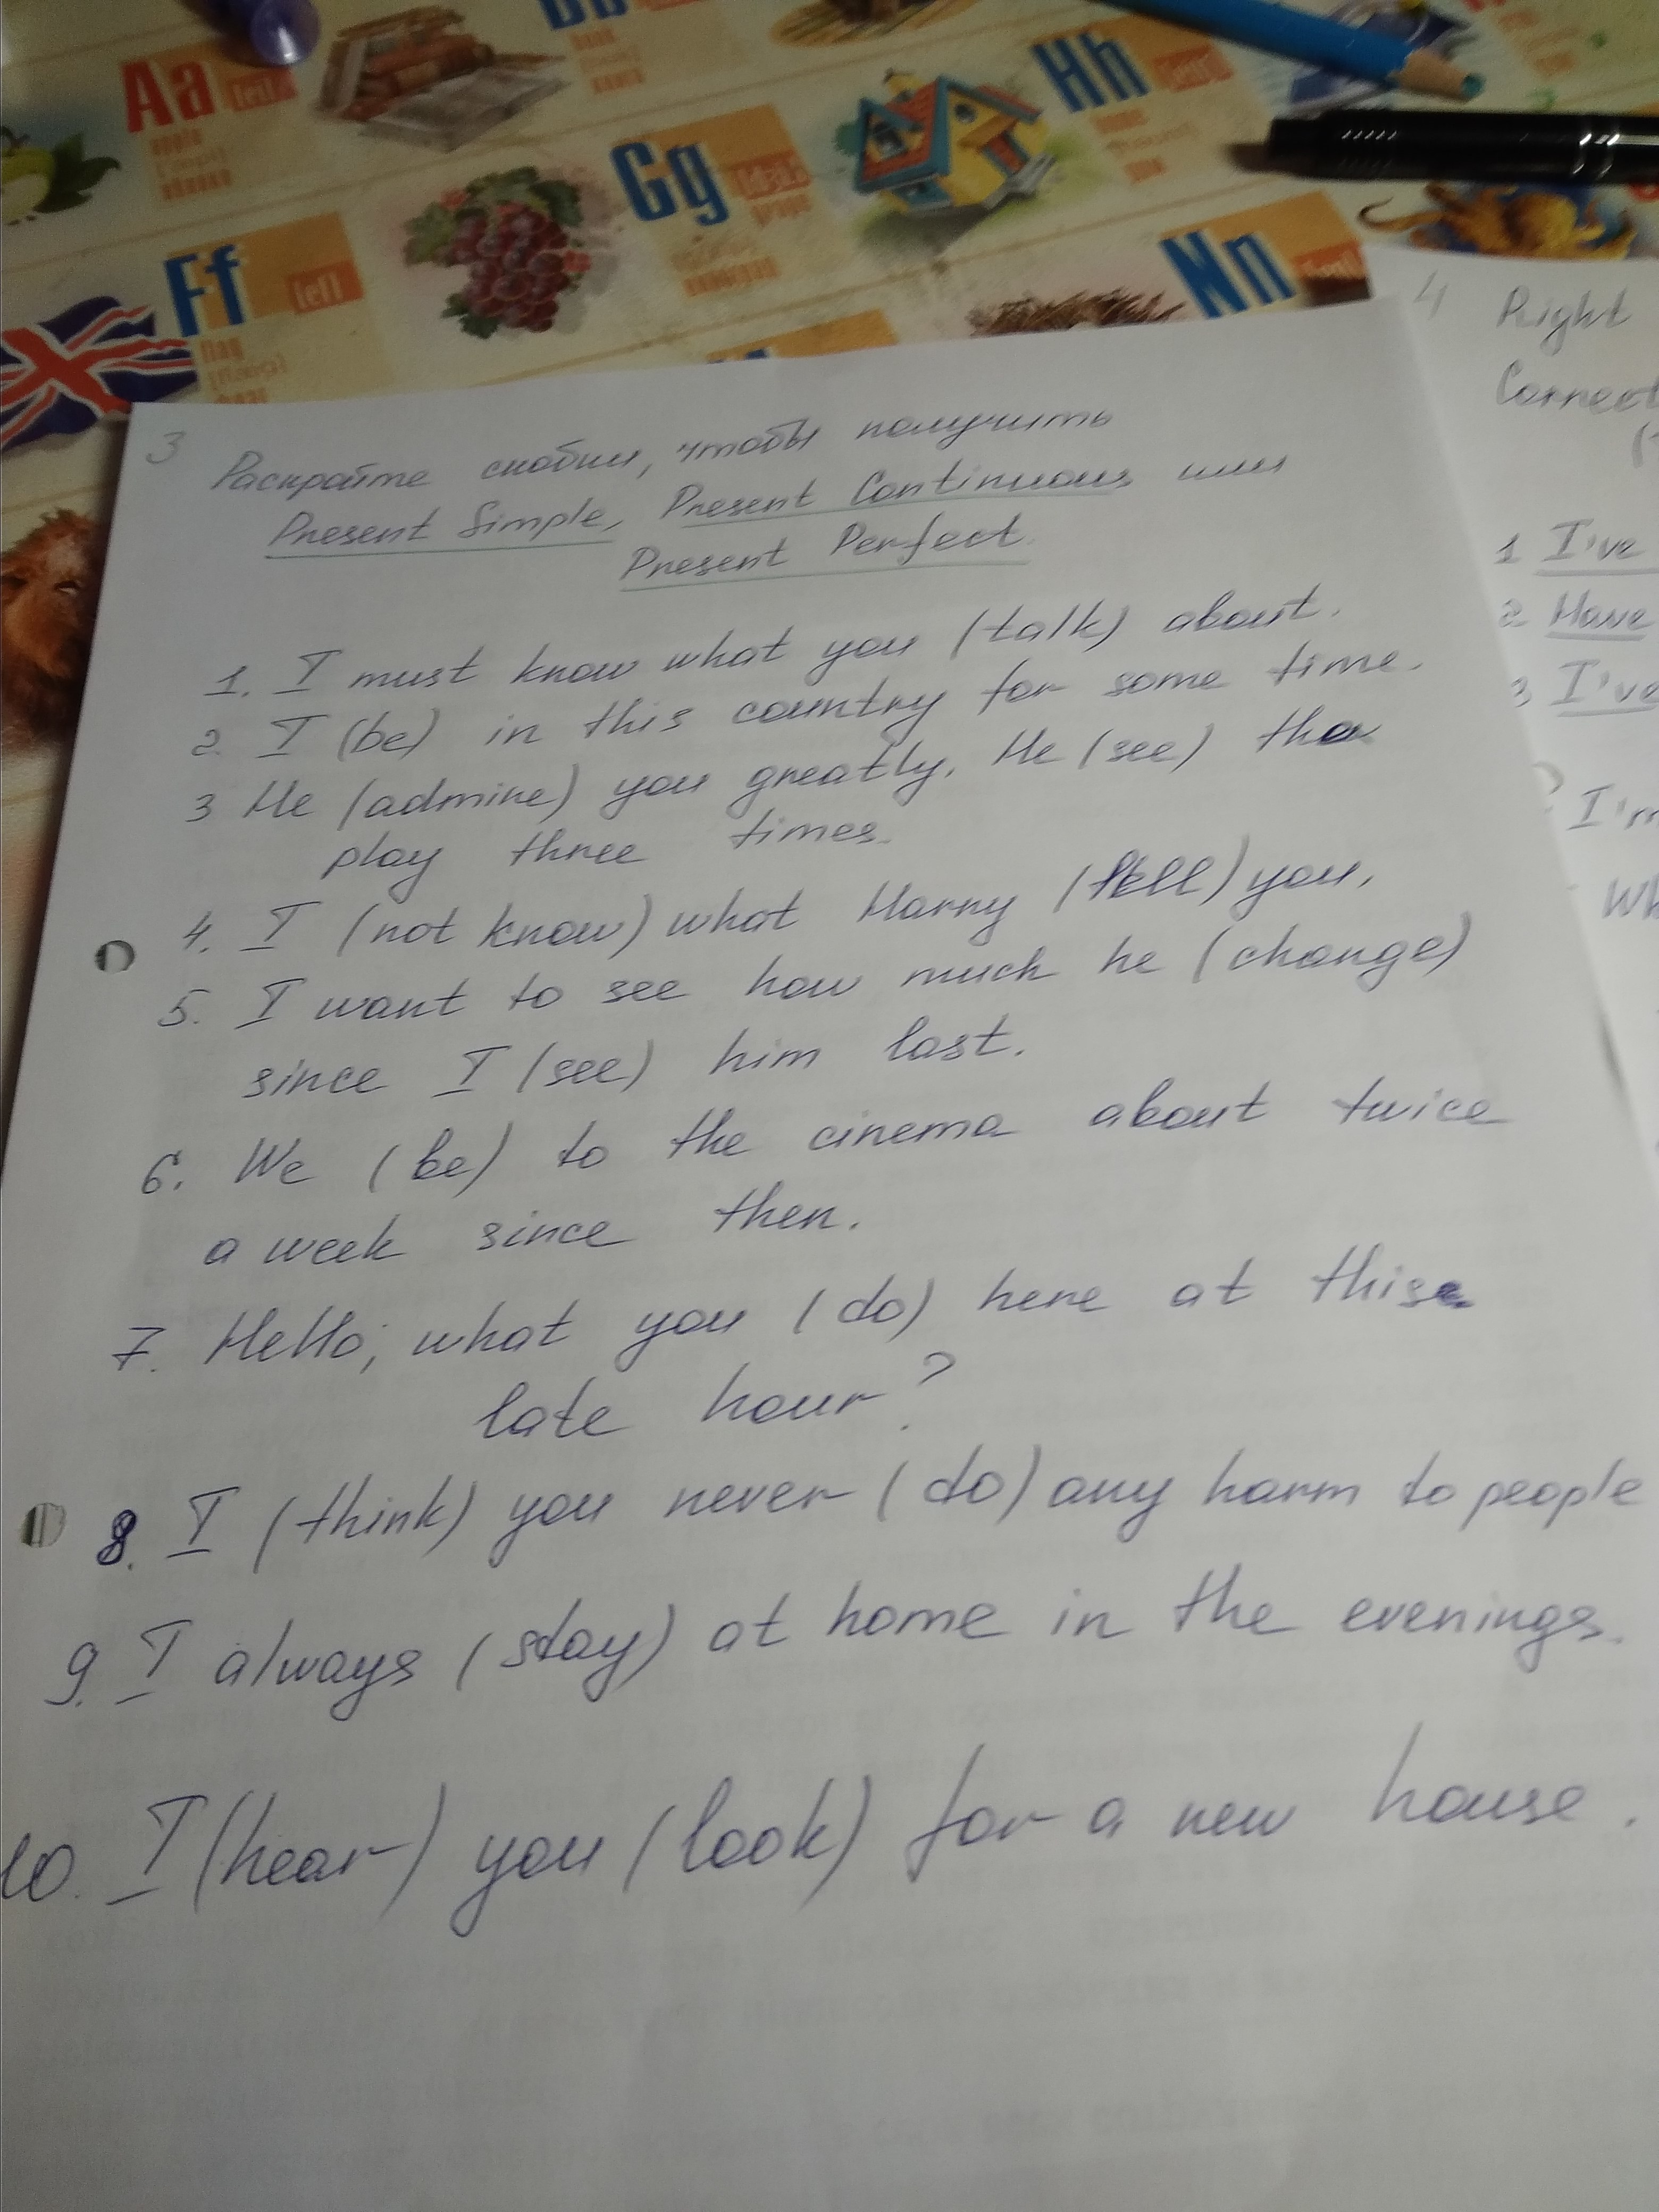 Bb
Aa
Hh
Gg
Nn
Ff
[ef]
3
Раскройте скобки, чтобы получить
Present Simple, Present Continuous или
Present Perfect.
1. I must know what you (talk) about.
2. I (be) in this country for some time.
3 He (admire) you greatly. He (see) the
play three times.
4. I (not know) what Harry (tell) you.
5. I want to see how much he (change)
since I (see) him last.
6. We (be) to the cinema about twice
a week since then.
7. Hello, what you (do) here at this
late hour?
8. I (think) you never (do) any harm to people
9. I always (stay) at home in the evenings.
10. I (hear) you (look) for a new house.
4 Right
Correct
1 I've
2 Have
3 I've
I'm
Wh